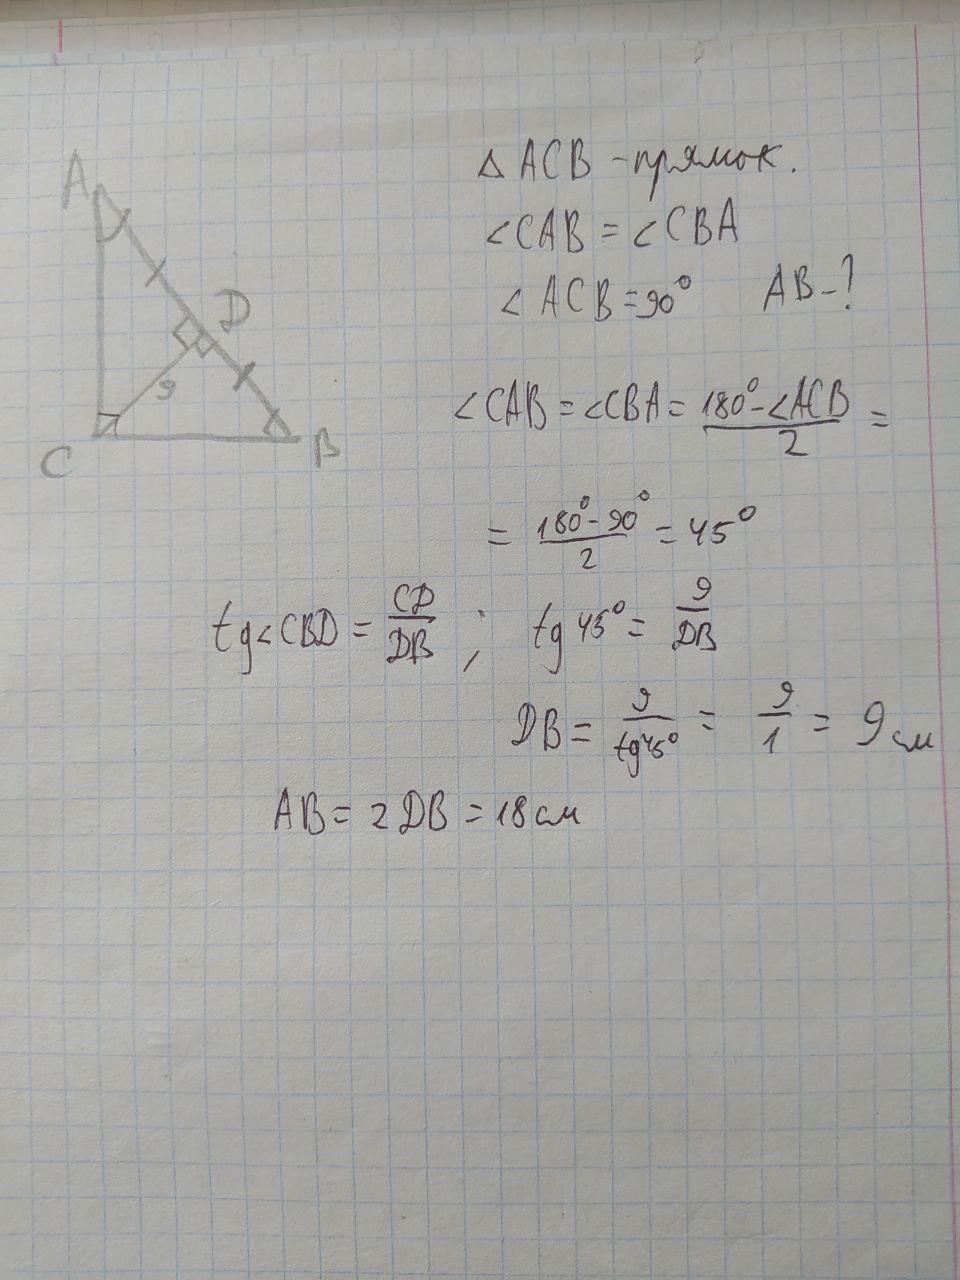 A
D
9
C
B
△ ACB - прямок.
∠CAB = ∠CBA
∠ ACB = 90° AB - ?
∠CAB = ∠CBA = (180° - ∠ACB)/2 =
= (180° - 90°)/2 = 45°
tg∠CBD = CD/DB ; tg 45° = 9/DB
DB = 9/tg45° = 9/1 = 9 см
AB = 2 DB = 18 см